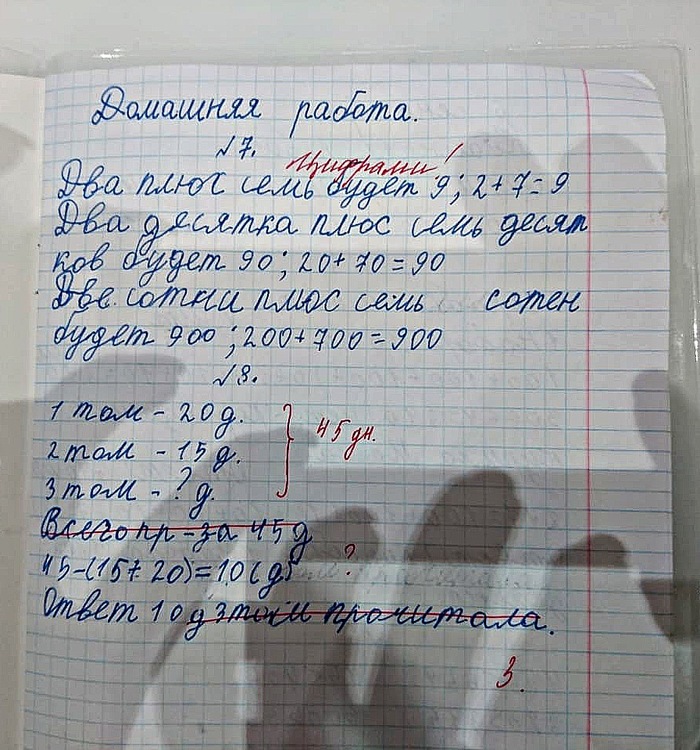 Домашняя работа.
√7.
Цифрами!
Два плюс семь будет 9; 2+7=9
Два десятка плюс семь десят
ков будет 90; 20+70=90
Две сотни плюс семь сотен
будет 900; 200+700=900
√8.
1 том - 20 д.
2 том - 15 д.
3 том - ? д.
45 дн.
Всего пр-за 45 д
45-(15+20)=10(д)
?
Ответ 10 д 3 том прочитала.
3.